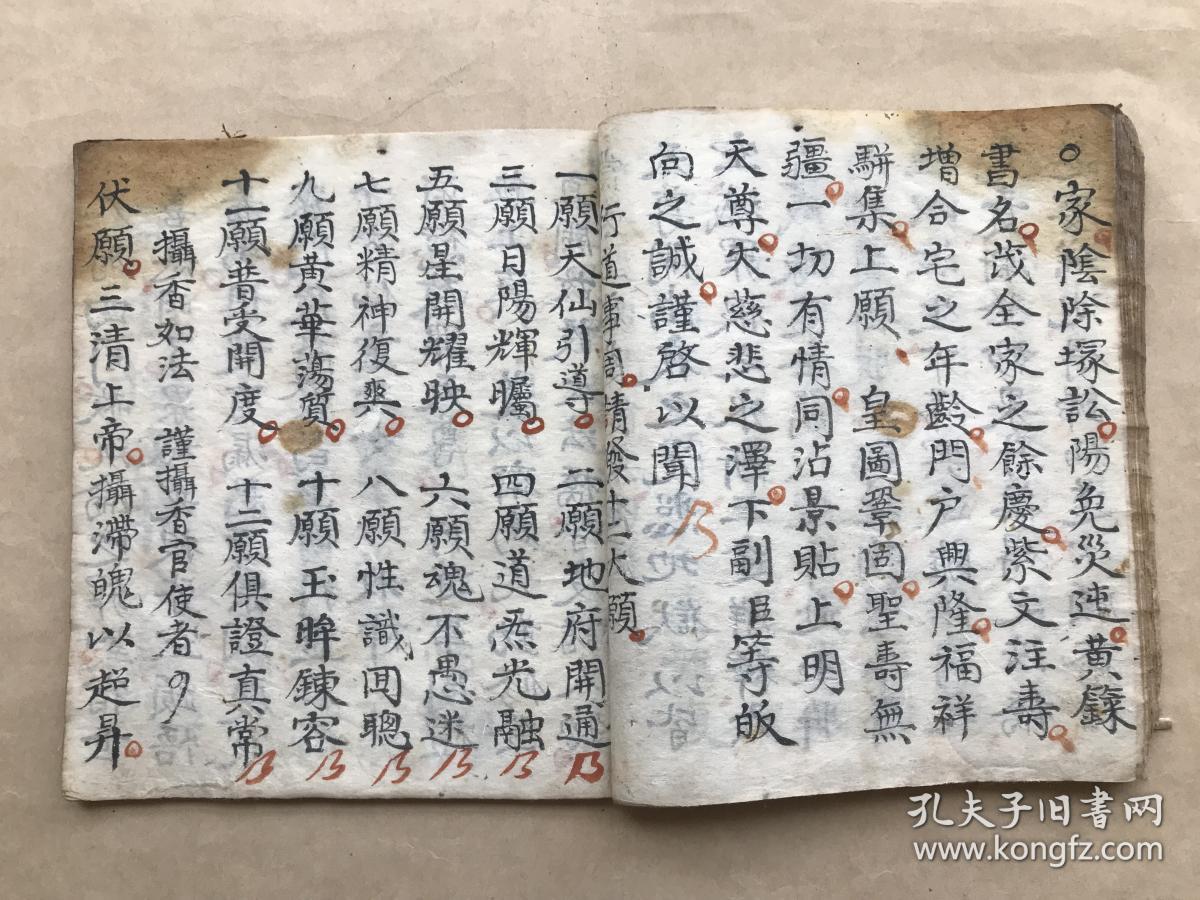 家陰除塚訟陽免災迍黃籙
書名茂全家之餘慶紫文注壽
增合宅之年齡門户興隆福祥
駢集上願皇圖鞏固聖壽無
疆一切有情同沾景貺上明
天尊大慈悲之澤下副臣等皈
向之誠謹啓以聞
行道事周請發十二大願
一願天仙引導 二願地府開通
三願日陽輝矚 四願道炁光融
五願星開耀映 六願魂不愚迷
七願精神復爽 八願性識囬聰
九願黃華蕩質 十願玉眸鍊容
十一願普受開度 十二願俱證真常
攝香如法 謹攝香官使者
伏願三清上帝攝滯魄以超昇
孔夫子旧书网
www.kongfz.com